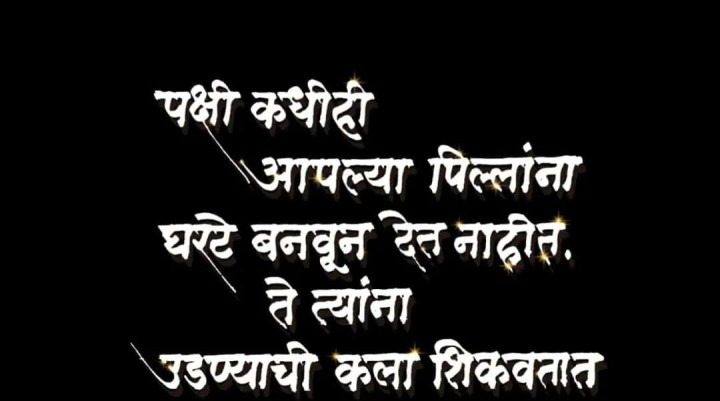 पक्षी कधीही
आपल्या पिल्लांना
घरटे बनवून देत नाहीत.
ते त्यांना
उडण्याची कला शिकवतात